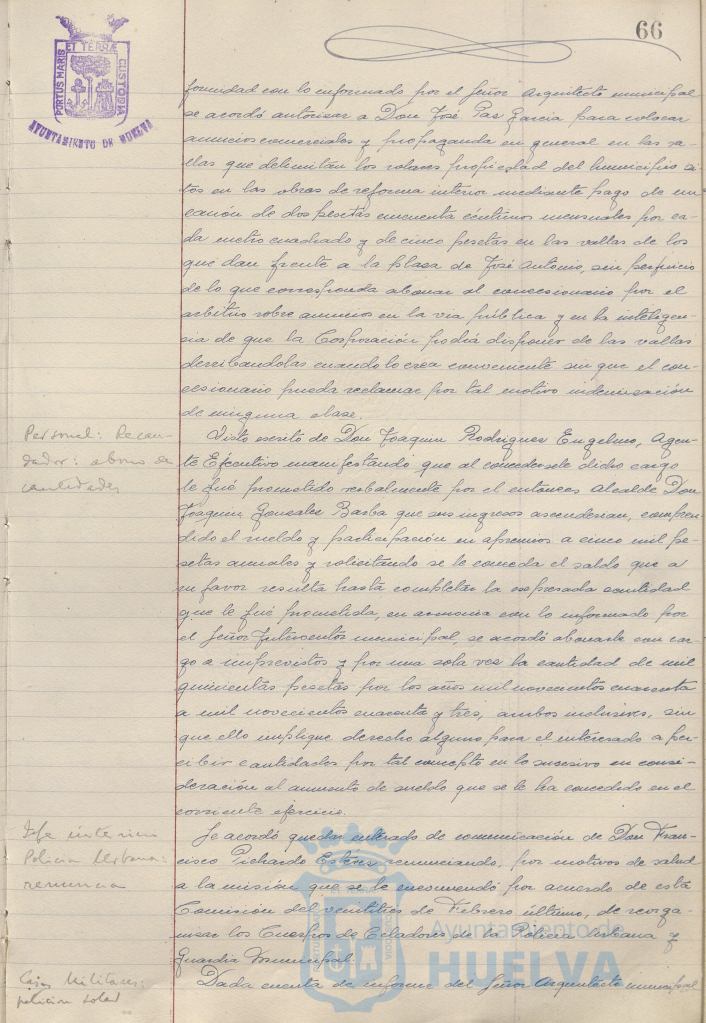 66
PORTUS MARIS ET TERRÆ CUSTODIA
AYUNTAMIENTO DE HUELVA
formidad con lo informado por el Señor Arquitecto municipal
se acordó autorizar a Don José Paz Garcia para colocar
anuncios comerciales y propaganda en general en las va-
llas que delimitán los solares propiedad del municipio si-
tos en las obras de reforma interior mediante pago de un
canón de dos pesetas cincuenta céntimos mensuales por ca-
da metro cuadrado y de cinco pesetas en las vallas de los
que dan frente a la plaza de José Antonio, sin perjuicio
de lo que corresponda abonar al concesionario por el
arbitrio sobre anuncios en la via pública y en la inteligen-
cia de que la Corporación podrá disponer de las vallas
derribandolas cuando lo crea conveniente sin que el con-
cesionario pueda reclamar por tal motivo indemnización
de ninguna clase.
Personal: Recau-
dador: abono de
cantidades
Visto escrito de Don Joaquin Rodriguez Engelmo, Agen-
te Ejecutivo manifestando que al concedersele dicho cargo
le fué prometido verbalmente por el entonces Alcalde Don
Joaquin Gonzalez Barba que sus ingresos ascenderian, compren-
dido el sueldo y participación en apremios a cinco mil pe-
setas anuales y solicitando se le conceda el saldo que a
su favor resulta hasta completar la expresada cantidad
que le fué prometida, en armonia con lo informado por
el Señor Interventor municipal, se acordó abonarle con car-
go a imprevistos y por una sola vez la cantidad de mil
quinientas pesetas por los años mil novecientos cuarenta
a mil novecientos cuarenta y tres, ambos inclusives, sin
que ello implique derecho alguno para el interesado a per-
cibir cantidades por tal concepto en lo sucesivo en consi-
deración al aumento de sueldo que se le ha concedido en el
corriente ejercicio.
Jefe interino
Policia Urbana:
renuncia
Se acordó quedar enterado de comunicación de Don Fran-
cisco Pichardo Estévez renunciando, por motivos de salud
a la misión que se le encomendó por acuerdo de esta
Comisión del veintitres de Febrero último, de reorga-
nizar los Cuerpos de Celadores de la Policia Urbana y
Guardia Municipal.
Casas Militares:
peticion solar
Dada cuenta de informe del Señor Arquitecto municipal
Ayuntamiento de
HUELVA